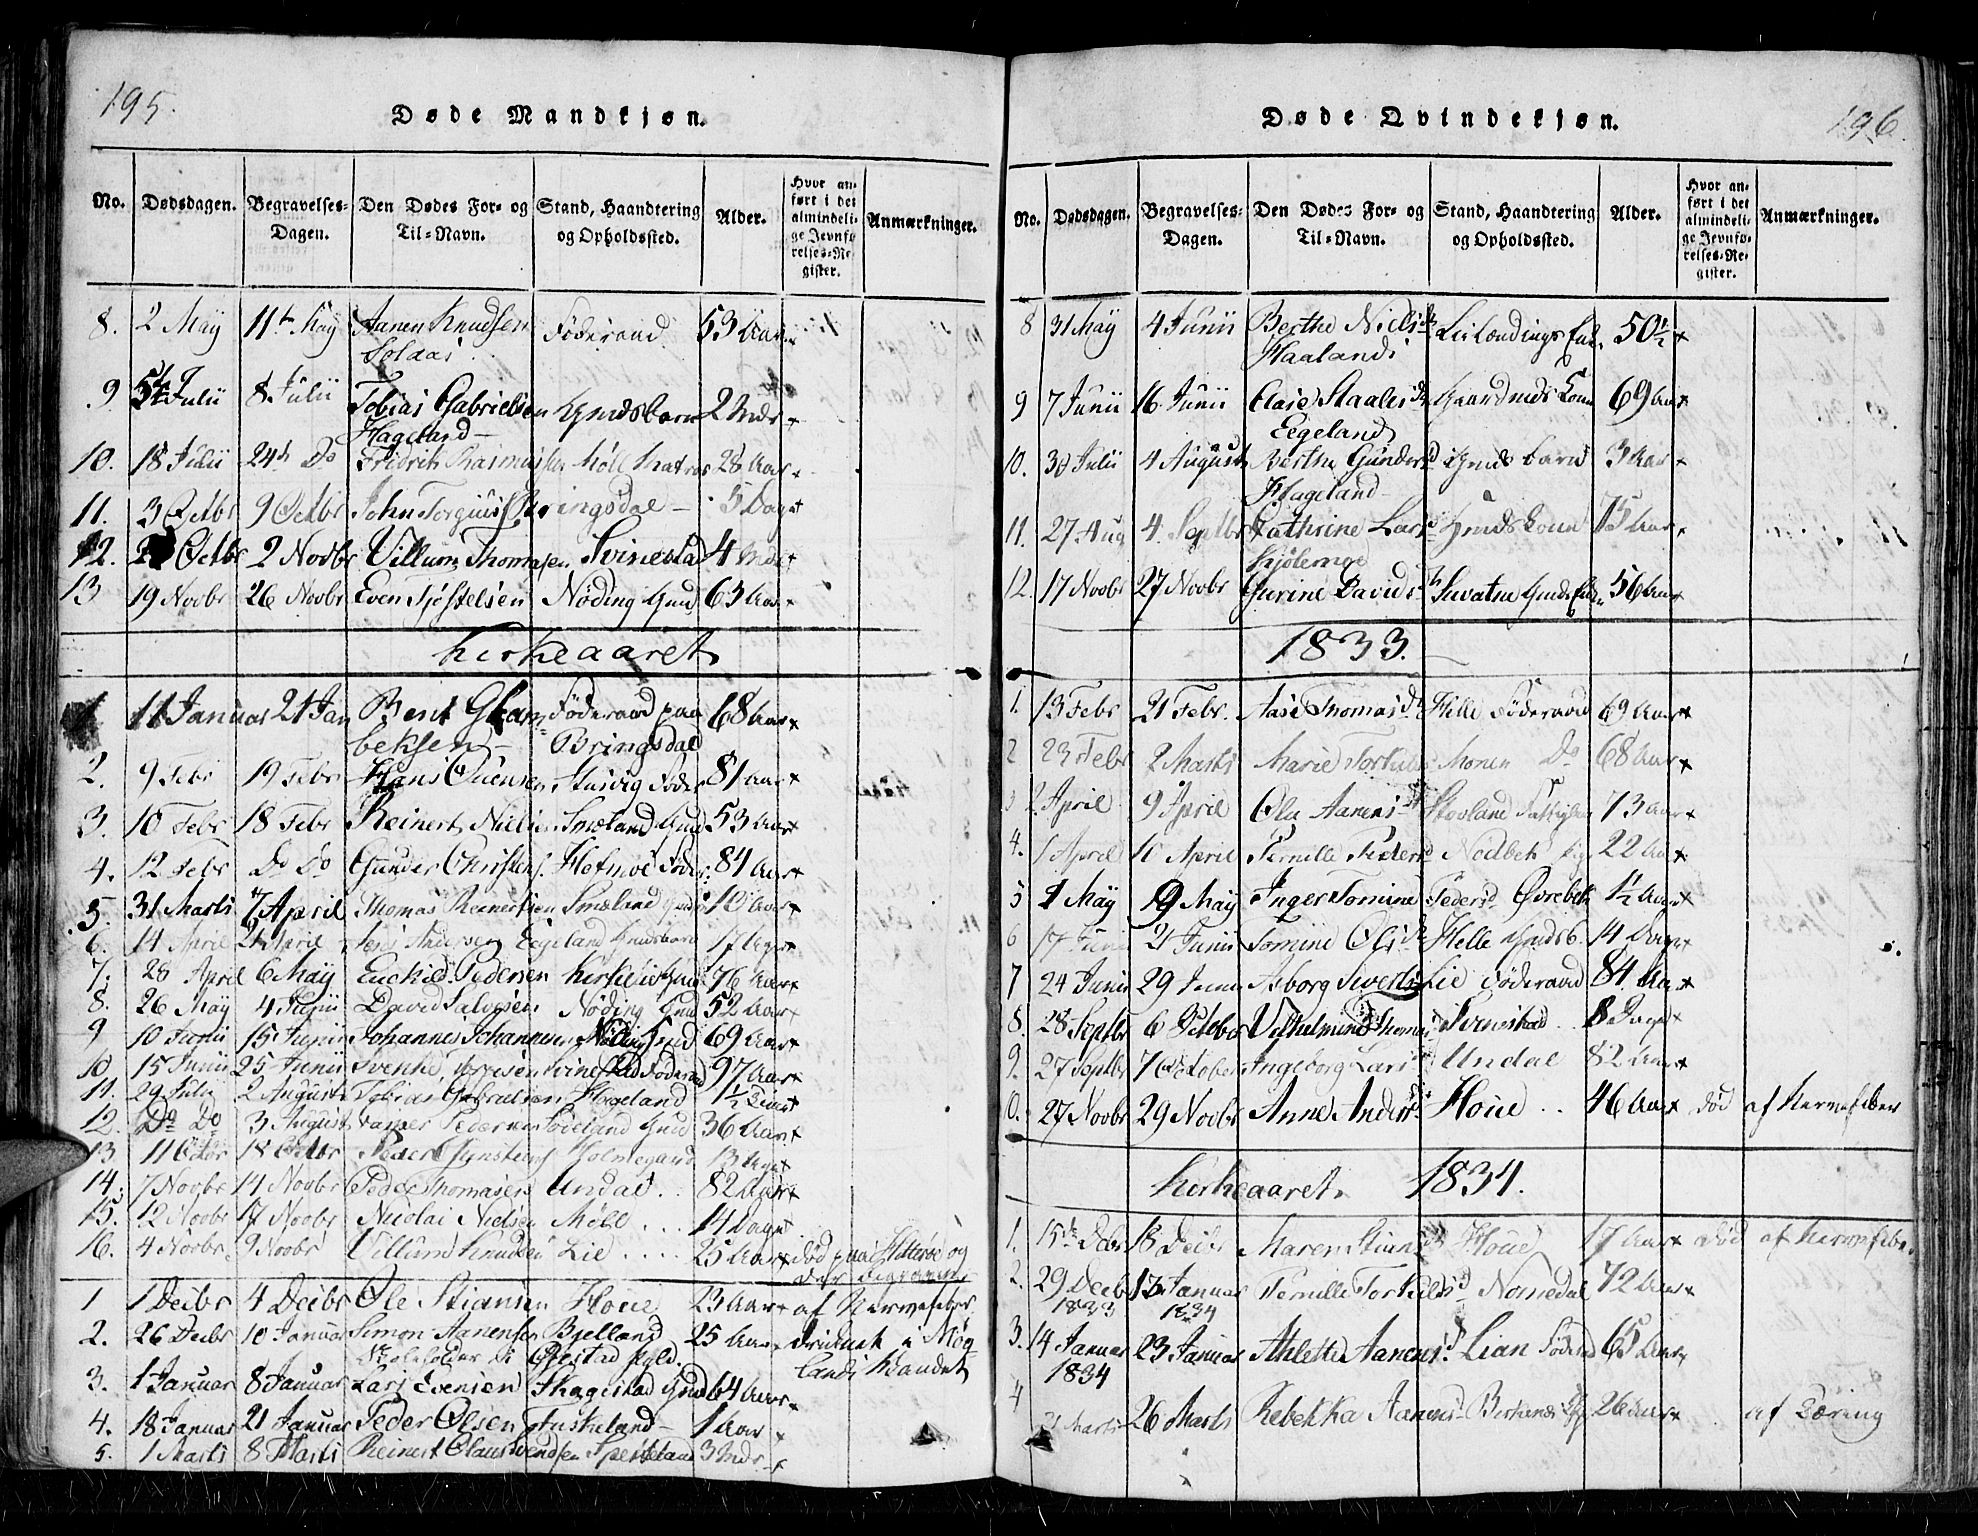 195.
Døde Mandkjøn.
No. Dødsdagen. Begravelses-Dagen. Den Dødes For- og Til-Navn. Stand, Haandtering og Opholdssted. Alder. Hvor anført i det almindelige Jevnførelses-Register. Anmærkninger.
8. 2 May 11te May Aanen Knudsen Føderaad 53 Aar
Solaas
9. 5te Julii 8 Julii Tobias Gabrielsen Gmdsbarn 2 Mdr
Hageland
10. 18 Julii 24de Do Fridrik Rasmusen Möll Matros 28 Aar
11. 3 Octbr 9 Octbr John Torgiuss Bringsdal 5 Dage
12. Octbr 2 Novbr Villum Thomasen Svinestad 4 Mdr
13 19 Novbr 26 Novbr Even Tjøstelsen Nøding Gmd 63 Aar
Kirkeaaret
1 11 Januar 21 Jan Bent Gham- Føderaad paa 68 Aar
beksen Bringsdal
2. 9 Febr 19 Febr Hans Føder 81 Aar
3. 10 Febr 18 Febr Reinert Nielsen Smæland Gmd 53 Aar
4. 12 Febr Do Do Gunder Christens. Hofmoe Føder. 84 Aar
5. 31 Marts 7 April Thomas Reinertsen Smæland 10 Aar
6. 14 April 21 April Jens Andersen Eegeland Gmdsbarn 17 Uger
7. 28 April 6 May Enchild Pedersen Gmd 76 Aar
8. 26 May 4 Junii David Salvesen Nøding Gmd 52 Aar
9 10 Junii 15 Junii Johannes Johannesen Nøding Gmd 69 Aar
10 15 Junii 25 Junii Svenke Svinestad Føderaad 97 Aar
11. 29 Julii 2 August Tobias Gabrielsen Hageland 1½
12. Do Do 3 August Casper Pedersen Gmd 36 Aar
13 11 Octbr 18 Octbr Peder Holmegaard 13 Uger
14. 7 Novbr 14 Novbr Peder Thomasen Undal 82 Aar
15. 12 Novbr 17 Novbr Nicolai Nielsen 14 Dage
16. 4 Novbr. 9 Novbr Villum Knudsen Lie 25 Aar død paa Hitterøe og
der begraven
1 1 Decbr 4 Decbr Ole Stiansen Houe 23 Aar af Nervefeber
2. 26 Decbr 10 Januar Simon Aanensen Bjelland 25 Aar Druknet i Møg-
Skoleholder i Øvestad Pgld. lands Vandet
3. 1 Januar 8 Januar Lars Evensen Skagestad Gmd 64 Aar
4. 18 Januar 21 Januar Peder Olsen Fuskeland 1 Aar
5. 1 Marts 8 Marts Reinert Claus Svendsen Spetteland 3 Mdr
196.
Døde Qvindekjøn.
No. Dødsdagen. Begravelses-Dagen. Den Dødes For- og Til-Navn. Stand, Haandtering og Opholdssted. Alder. Hvor anført i det almindelige Jevnførelses-Register. Anmærkninger.
8 31 May 4 Junii Berthe Nielsd Enk. 50½
Haaland
9 7 Junii 16 Junii Elise Staalesd Gaardmds Kone 69 Aar
Eegeland
10. 30 Julii 4 August Berthe Gundersd Gmds barn 3 Aar
Hageland
11. 27 Aug 4 Septbr Cathrine Larsd Gmds Kone 75 Aar
Kjølemoe
12. 17 Novbr 27 Novbr Gurine Davidsd Suvatne Gmds Enke 56 Aar
1833.
1. 13 Febr 21 Febr. Aase Thomasd Helle Føderaad 69 Aar
2 23 Febr 2 Marts Marie Torkelsd Monen Do 68 Aar
3 2 April 9 April Ola Aanensd Stovland 73 Aar
4. 1 April 10 April Pernille Pedersd Nodbek Pige 22 Aar
5 1 May 19 May Inger Tomine Pedersd Øvrebek 1½ Aar
6 17 Junii 21 Junii Tomine Olsd Helle Gmdsb. 14 Dage
7 24 Junii 29 Junii Asborg Sivertsd Lie Føderaad 84 Aar
8. 28 Septbr 6 October Vilhelmine Thomasd Svinestad 8 Dage
9. 27 Septbr 7 October Ingeborg Larsd Undal 82 Aar
10. 27 Novbr 29 Novbr Anne Andersd Houe 46 Aar død af Nervefeber
Kirkeaaret 1834.
1. 15de Decbr 18 Decbr Maren Stiansd Houe 17 Aar død af Nervefeber
2. 29 Decbr 12 Januar Pernille Torkelsd Nomedal 72 Aar
1833 1834
3. 14 Januar 23 Januar Athlette Aanensd Lian Føderaad 65 Aar
1834
4 21 Marts 26 Marts Rebekka Aanensd 26 Aar af Tæring